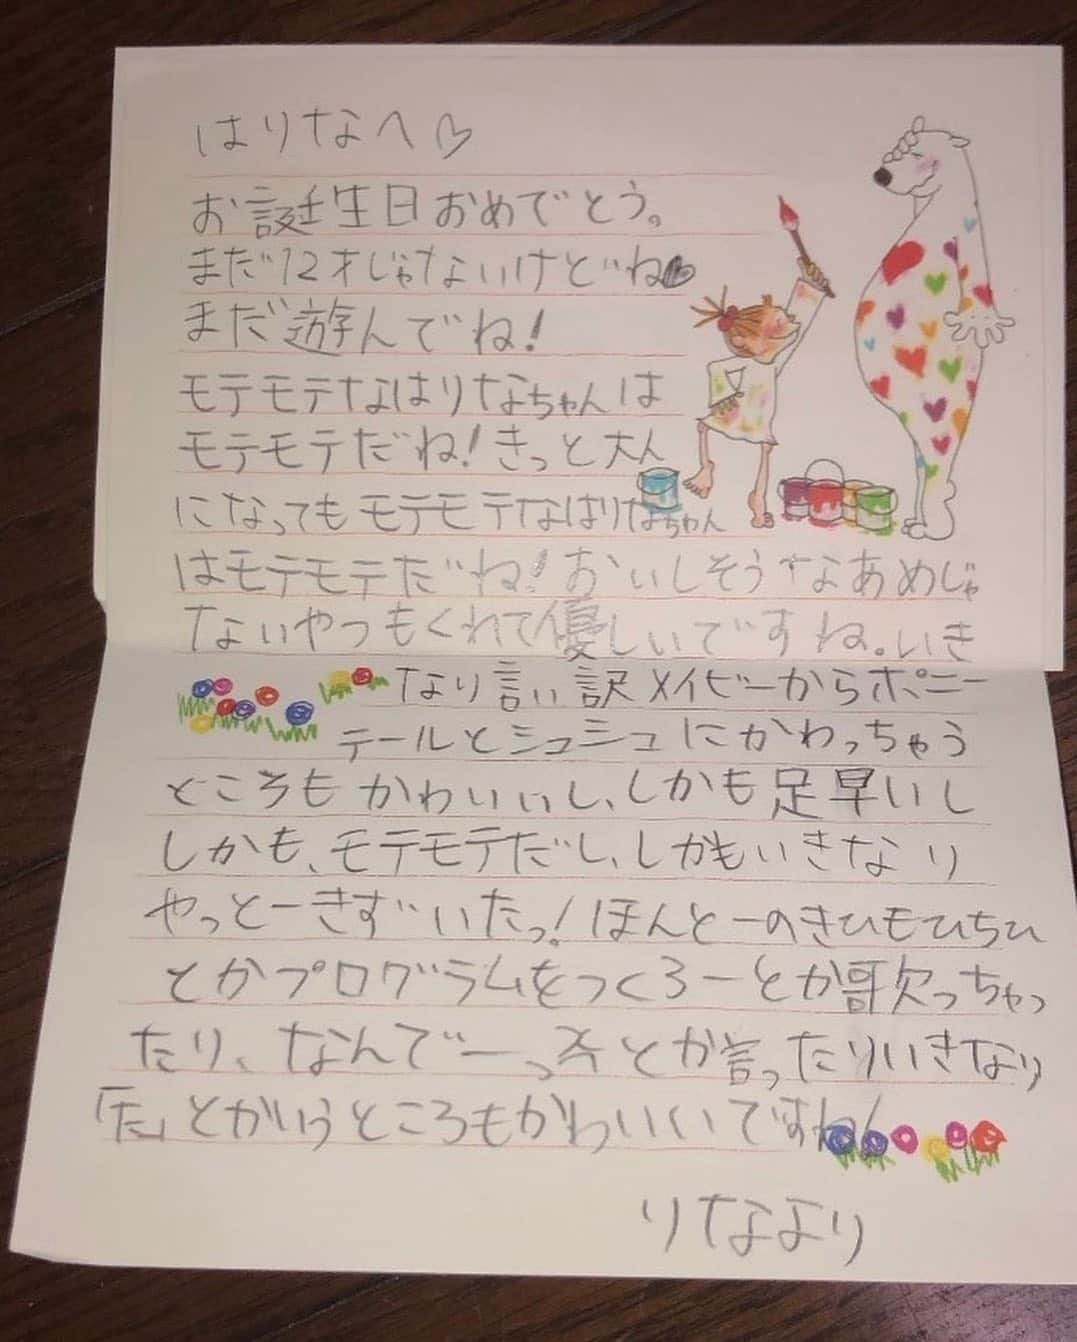 はりなへ♡
お誕生日おめでとう。
まだ12才じゃないけどね♥
まだ遊んでね!
モテモテなはりなちゃんは
モテモテだね!きっと大人
になってもモテモテなはりなちゃん
はモテモテだね!おいしそうなあめじゃ
ないやつもくれて優しいですね。いき
なり言い訳メイビーからポニー
テールとシュシュにかわっちゃう
ところもかわいいし、しかも足早いし
しかも、モテモテだし、しかもいきなり
やっとーきずいたっ!ほんとーのきひもひちひ
とかプログラムをつくろーとか歌っちゃっ
たり、なんでーっ
とか言ったりいきなり
「た」とかいうところもかわいくいですね!
りなより